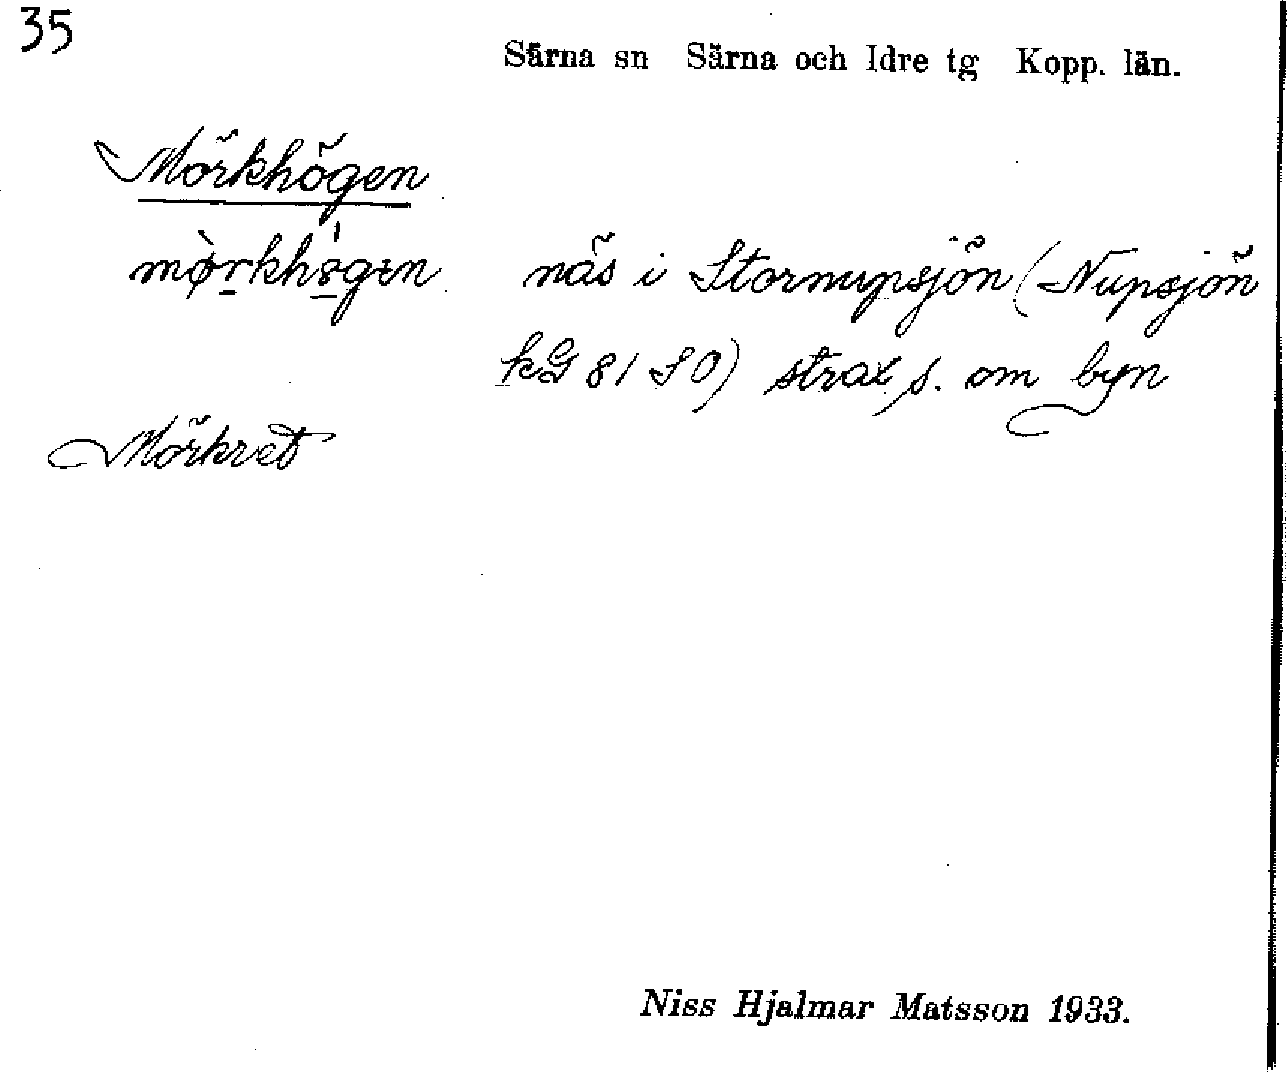 35
Särna sn Särna och Idre tg Kopp. län.
Mörkhögen
mørkhögen näs i Stornupsjön (Nupsjön
kG 81 SO) strax s. om byn
Mörkret
Niss Hjalmar Matsson 1933.